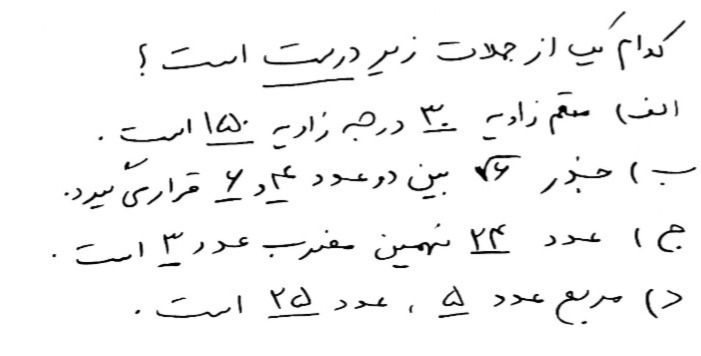 کدام یک از جملات زیر درست است ؟
الف) متمم زاویه ۳۰ درجه زاویه ۱۵۰ است .
ب) جذر √۶ بین دو عدد ۴ و ۶ قرار می‌گیرد.
ج) عدد ۲۴ نهمین مضرب عدد ۳ است .
د) مربع عدد ۵ ، عدد ۲۵ است .